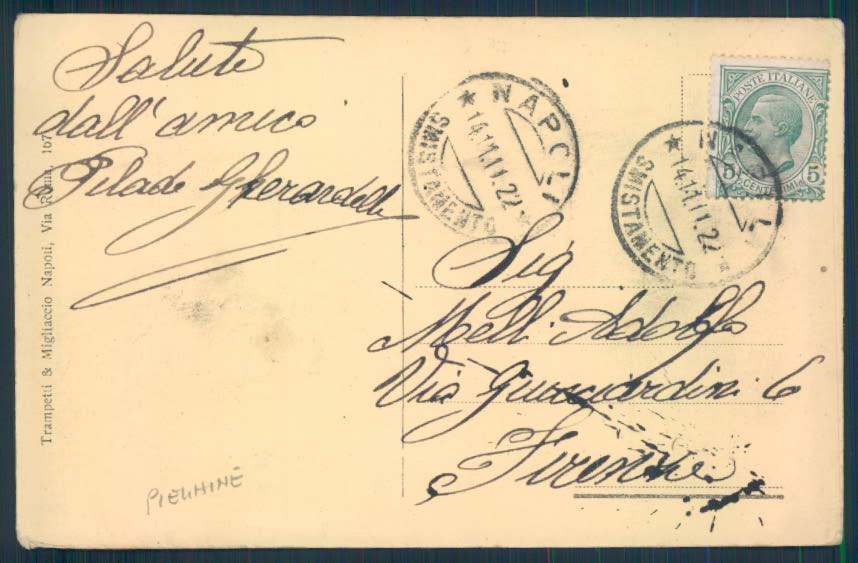 Saluti
dall'amico
Pilade Gherardelli
Trampetti & Migliaccio Napoli, Via Roma, 167
PIEUMINE
NAPOLI
14.11.11.22
SMISTAMENTO
POSTE ITALIANE
5 5
CENTESIMI
NAPOLI
14.11.11.22
SMISTAMENTO
Sig
Melli Adolfo
Via Guicciardini 6
Firenze